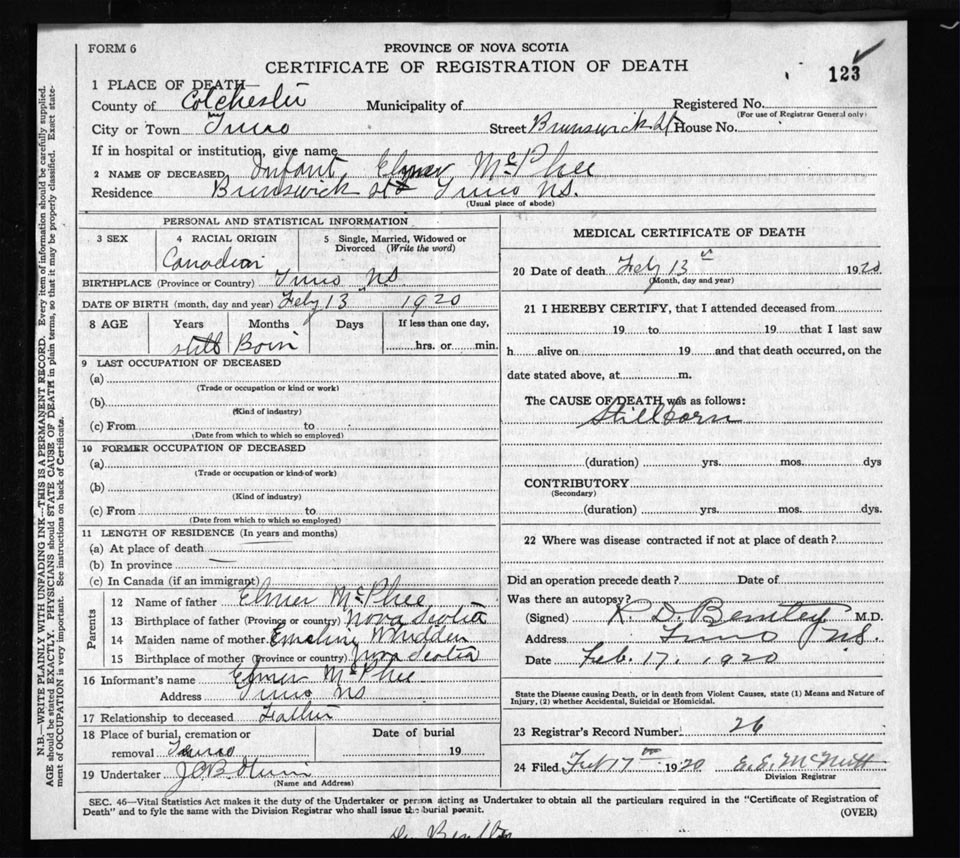 FORM 6
PROVINCE OF NOVA SCOTIA
CERTIFICATE OF REGISTRATION OF DEATH
123
1 PLACE OF DEATH—
County of Colchester Municipality of Registered No.
(For use of Registrar General only)
City or Town Truro Street Brunswick St House No.
If in hospital or institution, give name
2 NAME OF DECEASED Infant Elmer McPhee
Residence Brunswick St Truro NS.
(Usual place of abode)
PERSONAL AND STATISTICAL INFORMATION
3 SEX 4 RACIAL ORIGIN 5 Single, Married, Widowed or
Divorced (Write the word)
Canadian
BIRTHPLACE (Province or Country) Truro NS
DATE OF BIRTH (month, day and year) Feby 13 1920
8 AGE Years Months Days If less than one day,
Still Born hrs. or min.
9 LAST OCCUPATION OF DECEASED
(a)
(Trade or occupation or kind or work)
(b)
(Kind of industry)
(c) From to
(Date from which to which so employed)
10 FORMER OCCUPATION OF DECEASED
(a)
(Trade or occupation or kind of work)
(b)
(Kind of industry)
(c) From to
(Date from which to which so employed)
11 LENGTH OF RESIDENCE (In years and months)
(a) At place of death
(b) In province
(c) In Canada (if an immigrant)
Parents
12 Name of father Elmer McPhee
13 Birthplace of father (Province or country) Nova Scotia
14 Maiden name of mother
15 Birthplace of mother (Province or country) Nova Scotia
16 Informant's name Elmer McPhee
Address Truro NS
17 Relationship to deceased Father
18 Place of burial, cremation or Date of burial
removal Truro 19
19 Undertaker
(Name and Address)
MEDICAL CERTIFICATE OF DEATH
20 Date of death Feby 13th 1920
(Month, day and year)
21 I HEREBY CERTIFY, that I attended deceased from
19 to 19 that I last saw
h alive on 19 and that death occurred, on the
date stated above, at m.
The CAUSE OF DEATH was as follows:
Stillborn
(duration) yrs. mos. dys
CONTRIBUTORY
(Secondary)
(duration) yrs. mos. dys.
22 Where was disease contracted if not at place of death?
Did an operation precede death? Date of
Was there an autopsy?
(Signed) R. D. Bentley M.D.
Address Truro NS.
Date Feb. 17, 1920
State the Disease causing Death, or in death from Violent Causes, state (1) Means and Nature of
Injury, (2) whether Accidental, Suicidal or Homicidal.
23 Registrar's Record Number 26
24 Filed Feb 17 1920 E. E. McNutt
Division Registrar
SEC. 46—Vital Statistics Act makes it the duty of the Undertaker or person acting as Undertaker to obtain all the particulars required in the "Certificate of Registration of
Death" and to fyle the same with the Division Registrar who shall issue the burial permit.
(OVER)
N.B.—WRITE PLAINLY WITH UNFADING INK—THIS IS A PERMANENT RECORD. Every item of information should be carefully supplied.
AGE should be stated EXACTLY. PHYSICIANS should STATE CAUSE OF DEATH in plain terms, so that it may be properly classified. Exact state-
ment of OCCUPATION is very important. See instructions on back of Certificate.